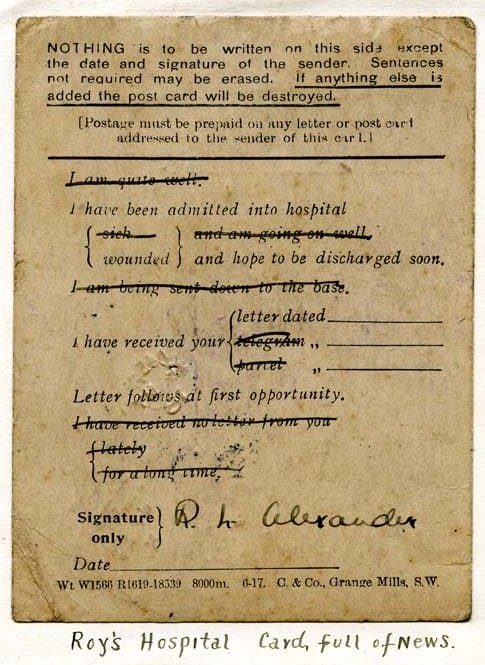 NOTHING is to be written on this side except
the date and signature of the sender. Sentences
not required may be erased. If anything else is
added the post card will be destroyed.
[Postage must be prepaid on any letter or post card
addressed to the sender of this card.]
I am quite well.
I have been admitted into hospital
{ sick } and am going on well.
{ wounded } and hope to be discharged soon.
I am being sent down to the base.
I have received your { letter dated
telegram „
parcel „
Letter follows at first opportunity.
I have received no letter from you
{ lately
for a long time.
Signature only } R. L. Alexander
Date
Wt W1566 R1619-18539 8000m. 6-17. C. & Co., Grange Mills, S.W.
Roy's Hospital Card, full of News.